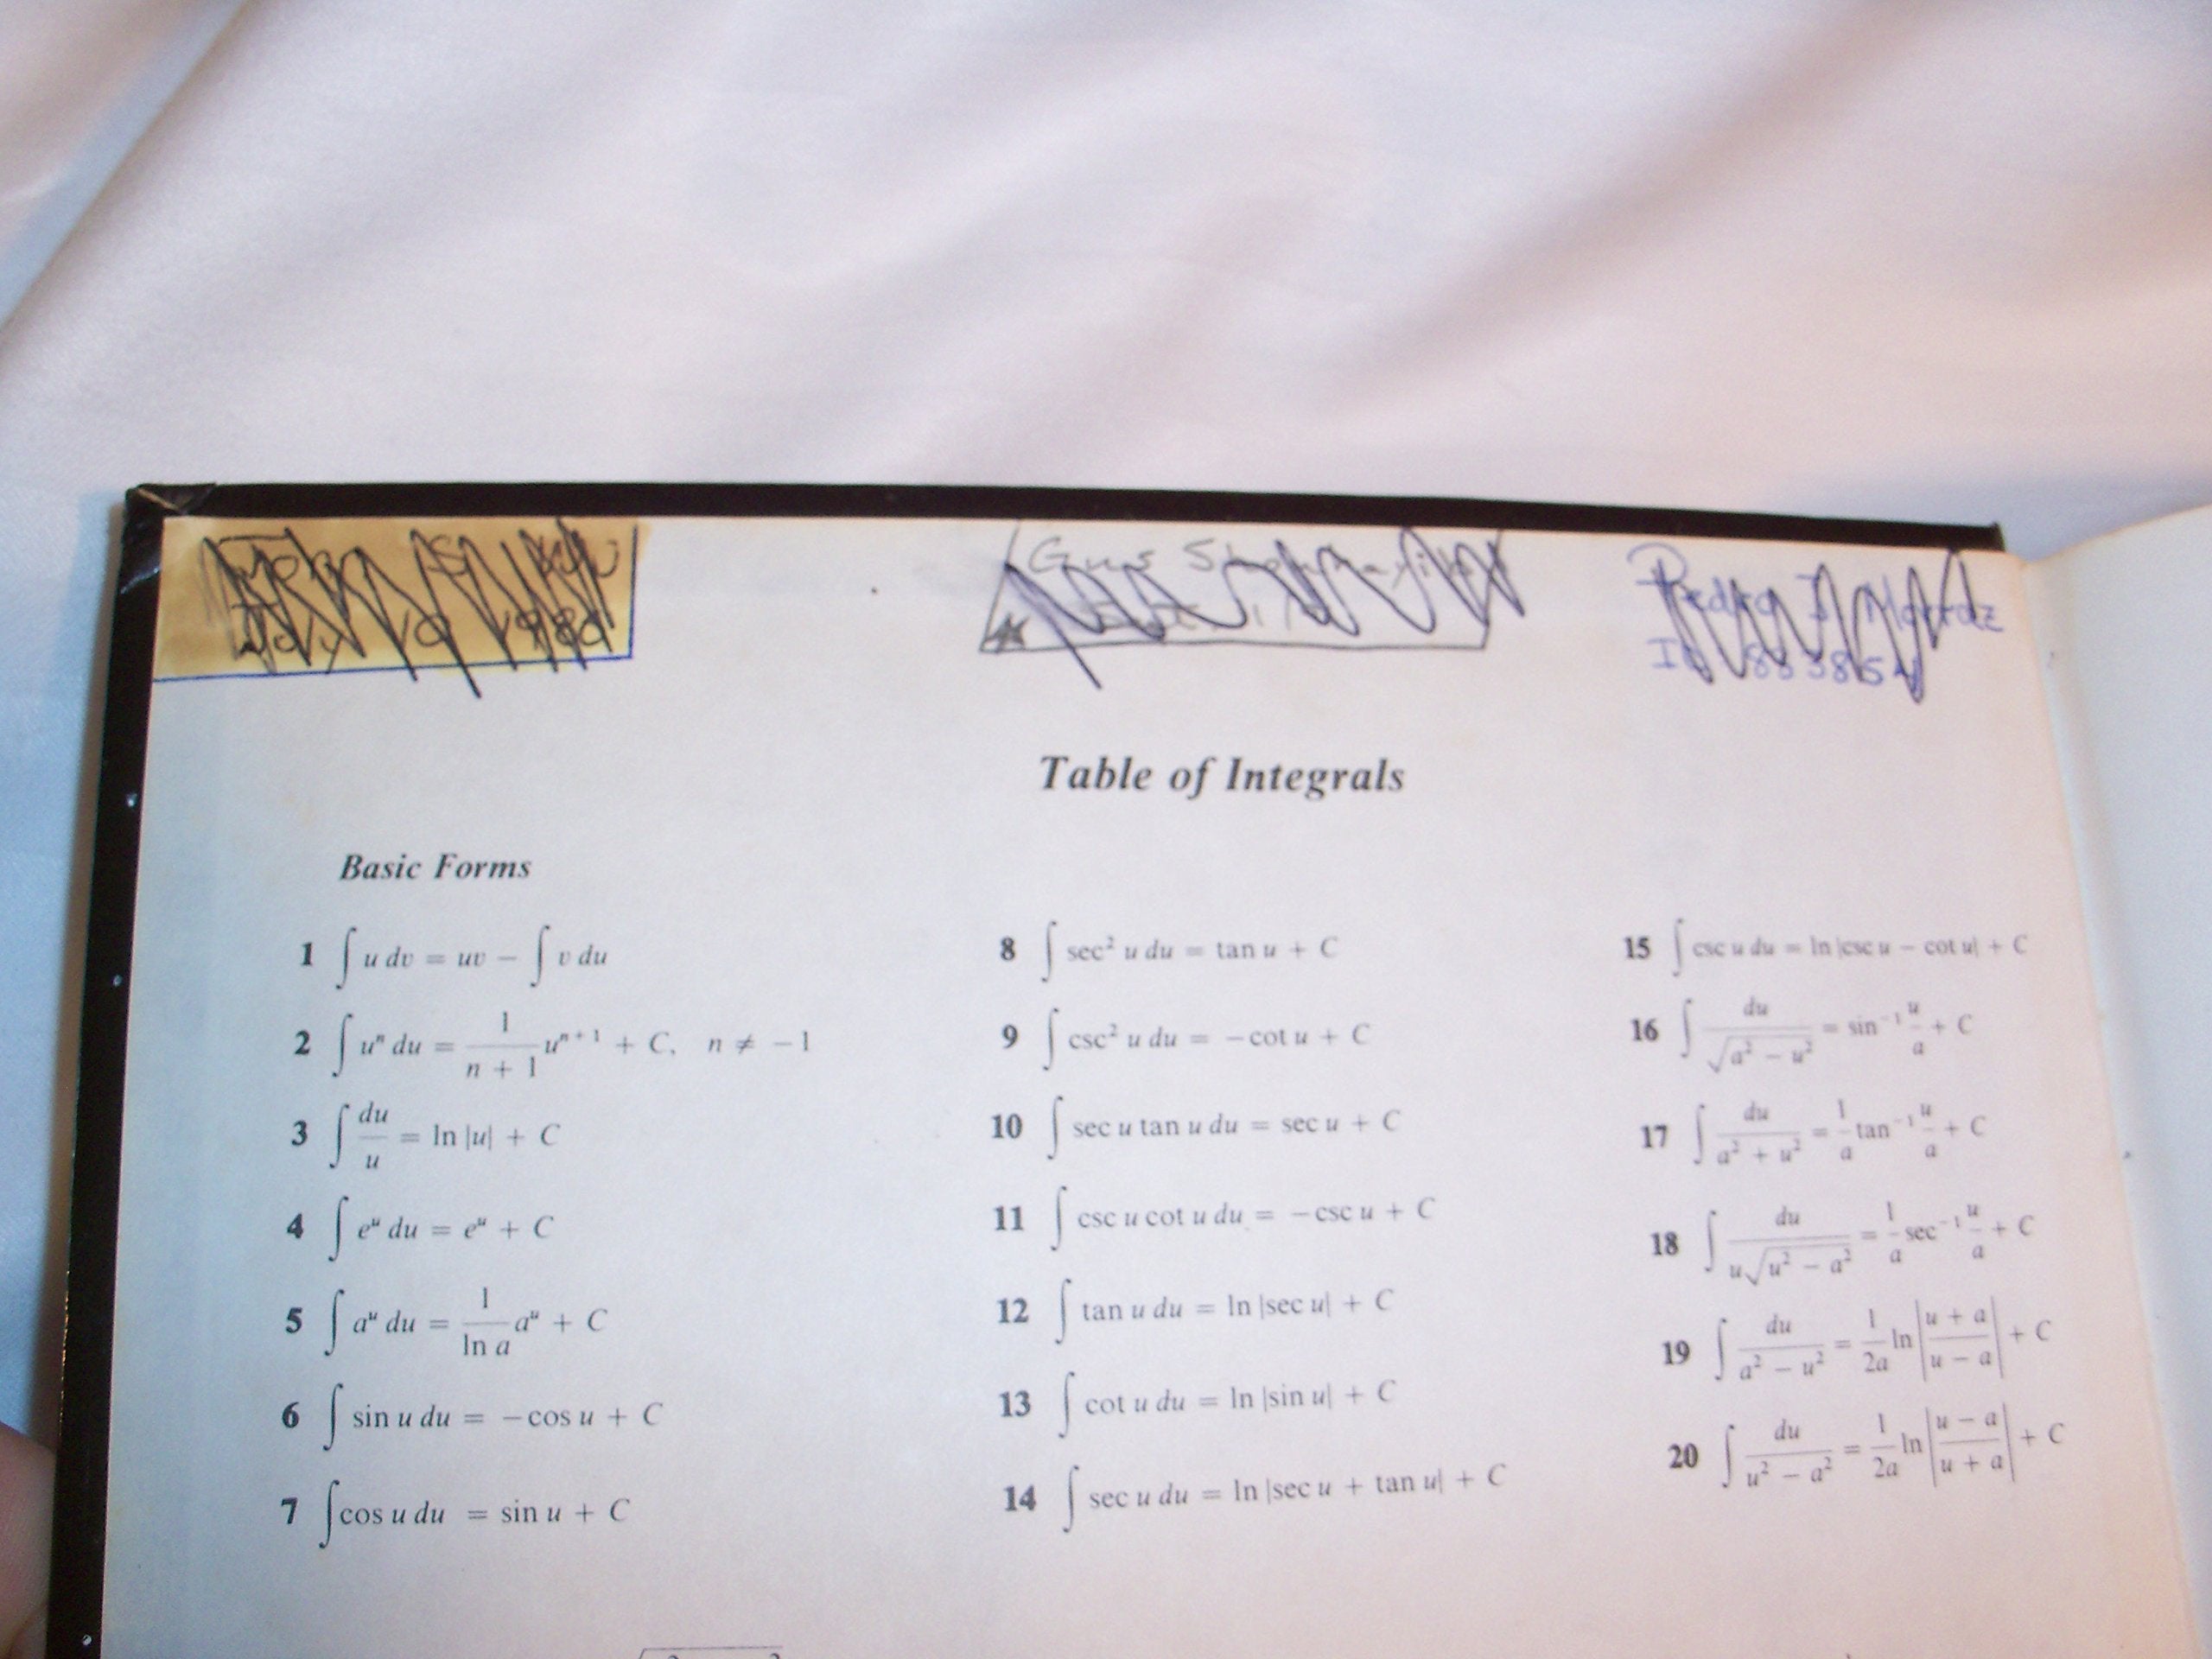 July 19 1989
Gus
Pedro J
Table of Integrals
Basic Forms
1 ∫ u dv = uv − ∫ v du
2 ∫ uⁿ du = 1/(n + 1) uⁿ⁺¹ + C, n ≠ −1
3 ∫ du/u = ln |u| + C
4 ∫ eᵘ du = eᵘ + C
5 ∫ aᵘ du = 1/(ln a) aᵘ + C
6 ∫ sin u du = −cos u + C
7 ∫ cos u du = sin u + C
8 ∫ sec² u du = tan u + C
9 ∫ csc² u du = −cot u + C
10 ∫ sec u tan u du = sec u + C
11 ∫ csc u cot u du = −csc u + C
12 ∫ tan u du = ln |sec u| + C
13 ∫ cot u du = ln |sin u| + C
14 ∫ sec u du = ln |sec u + tan u| + C
15 ∫ csc u du = ln |csc u − cot u| + C
16 ∫ du/√(a² − u²) = sin⁻¹ u/a + C
17 ∫ du/(a² + u²) = 1/a tan⁻¹ u/a + C
18 ∫ du/(u√(u² − a²)) = 1/a sec⁻¹ u/a + C
19 ∫ du/(a² − u²) = 1/2a ln |(u + a)/(u − a)| + C
20 ∫ du/(u² − a²) = 1/2a ln |(u − a)/(u + a)| + C